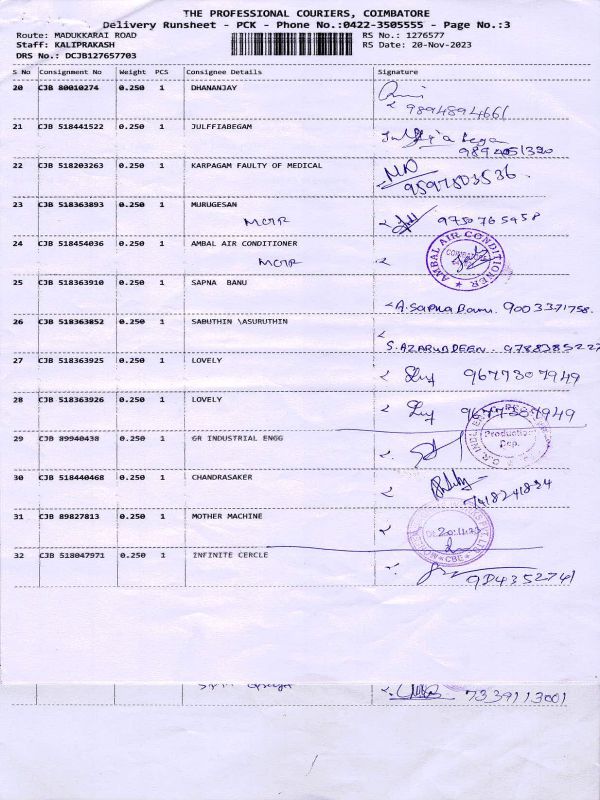 THE PROFESSIONAL COURIERS, COIMBATORE
Delivery Runsheet - PCK - Phone No.:0422-3505555 - Page No.:3
Route: MADUKKARAI ROAD RS No.: 1276577
Staff: KALIPRAKASH RS Date: 20-Nov-2023
DRS No.: DCJB127657703
S No Consignment No Weight PCS Consignee Details Signature
20 CJB 80010274 0.250 1 DHANANJAY
9894894661
21 CJB 518441522 0.250 1 JULFFIABEGAM
9894051320
22 CJB 518203263 0.250 1 KARPAGAM FAULTY OF MEDICAL
9597803536.
23 CJB 518363893 0.250 1 MURUGESAN
9750765958
24 CJB 518454036 0.250 1 AMBAL AIR CONDITIONER
AMBAL AIR CONDITIONER
25 CJB 518363910 0.250 1 SAPNA BANU
A.Sapna Banu. 9003371758.
26 CJB 518363852 0.250 1 SABUTHIN \ASURUTHIN
S.AZARUDEEN.
27 CJB 518363925 0.250 1 LOVELY
9677307949
28 CJB 518363926 0.250 1 LOVELY
29 CJB 89940438 0.250 1 GR INDUSTRIAL ENGG
Production
Dep.
30 CJB 518440468 0.250 1 CHANDRASAKER
31 CJB 89827813 0.250 1 MOTHER MACHINE
CBE
32 CJB 518047971 0.250 1 INFINITE CERCLE
7339113001